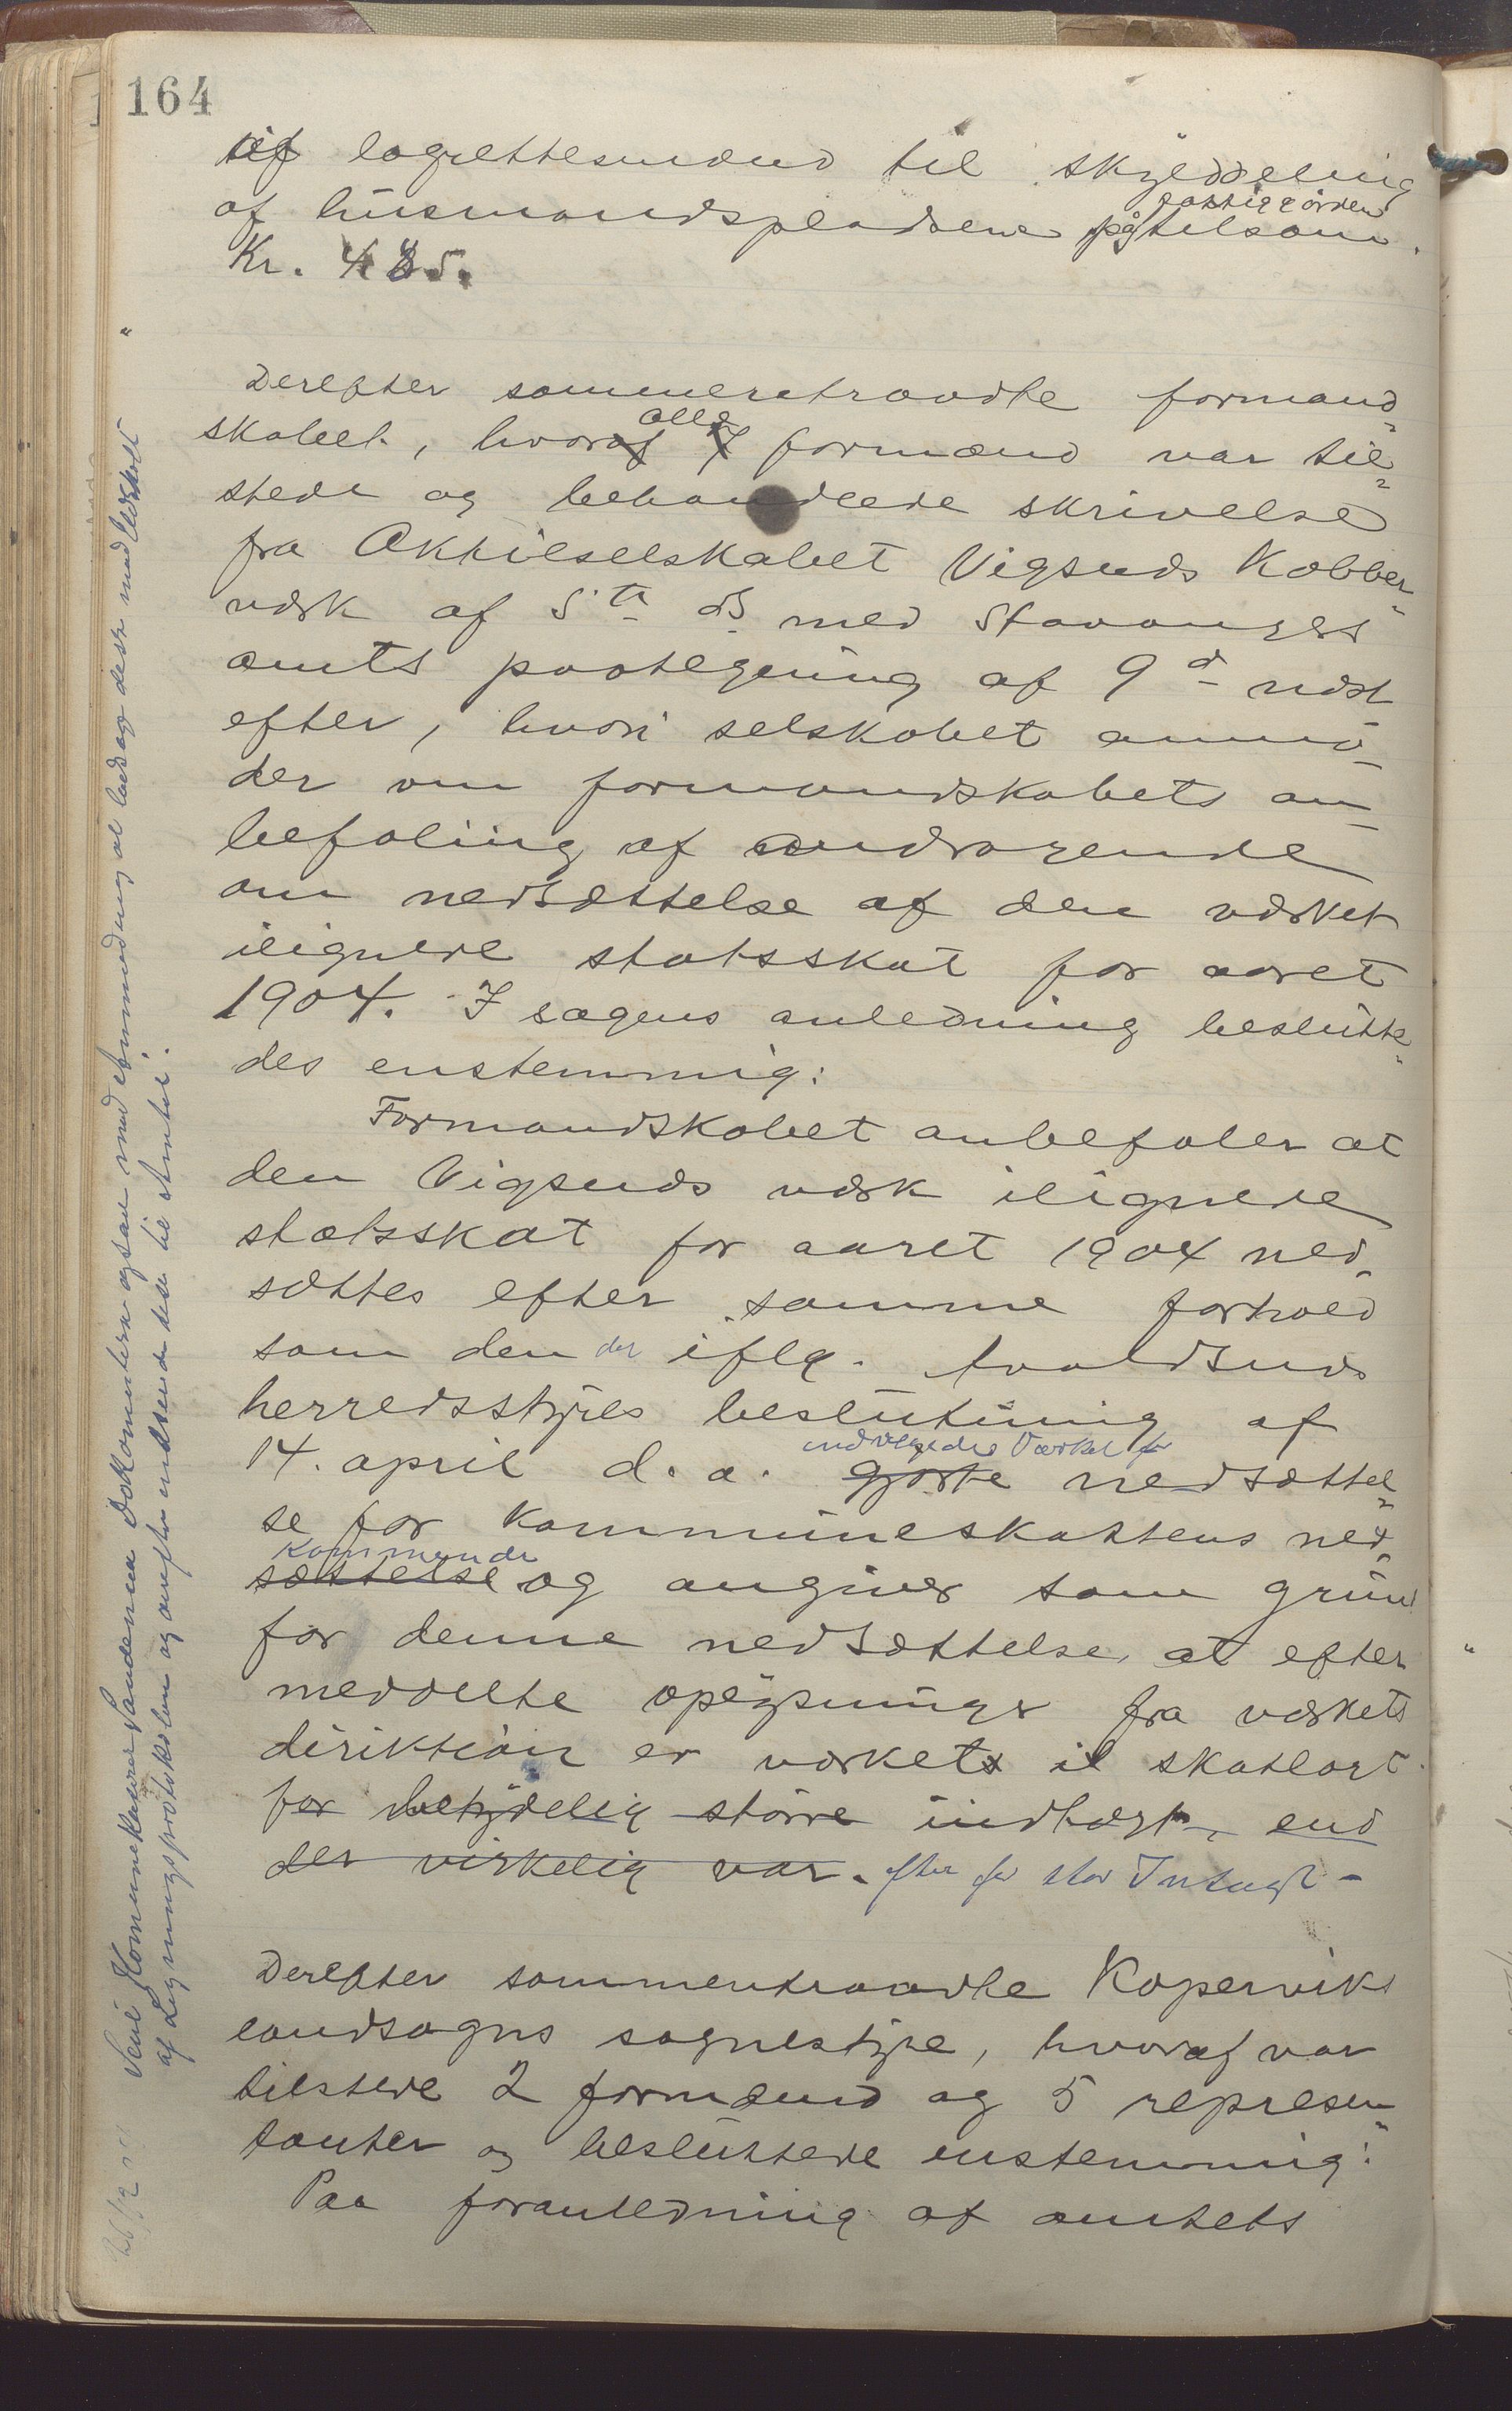 164
af lagrettesmænd til skylddeling
fattiggården
af husmandspladsene på tilsam.
Kr. 485.
Derefter sammentraadte formand„
alle
skabet, hvoraf 7 formænd var til„
stede og behandlede skrivelse
fra Aktieselskabet Vigsnds Kobber„
værk af 5te ds med Stavanger
amts paategning af 9d næst
efter, hvori selskabet anmo„
der om formandskabets an„
befaling af andragende
om nedsættelse af den værket
ilignede statsskat for aaret
1904. I sagens anledning beslutte„
des enstemmig:
Formandskabet anbefaler at
den Vigsnds værk ilignede
statsskat for aaret 1904 ned„
sættes efter samme forhold
som den der iflg. Avaldsnds
herredsstyres beslutning af
indvilgedes Værket for
14. april d. a. gjorte nedsættel„
se for kommuneskattens ned„
kommende
sættelse og angiver som grund
for denne nedsættelse, at efter
meddelte oplysninger fra værkets
direktion er værkets il skatlagt
for betydelig større indtægt, end
der virkelig var. efter for stor Indtægt –
Derefter sammentraadte Kopervik
landsogns sognestyre, hvoraf var
tilstede 2 formænd og 5 represen„
tanter og besluttede enstemmig:
Paa foranledning af amtets
Kommunekasserer dokumentere med Anmodning at ledsage disse med Udskrift
af Ligningsprotokollen og derefter indsende disse til Amtet.